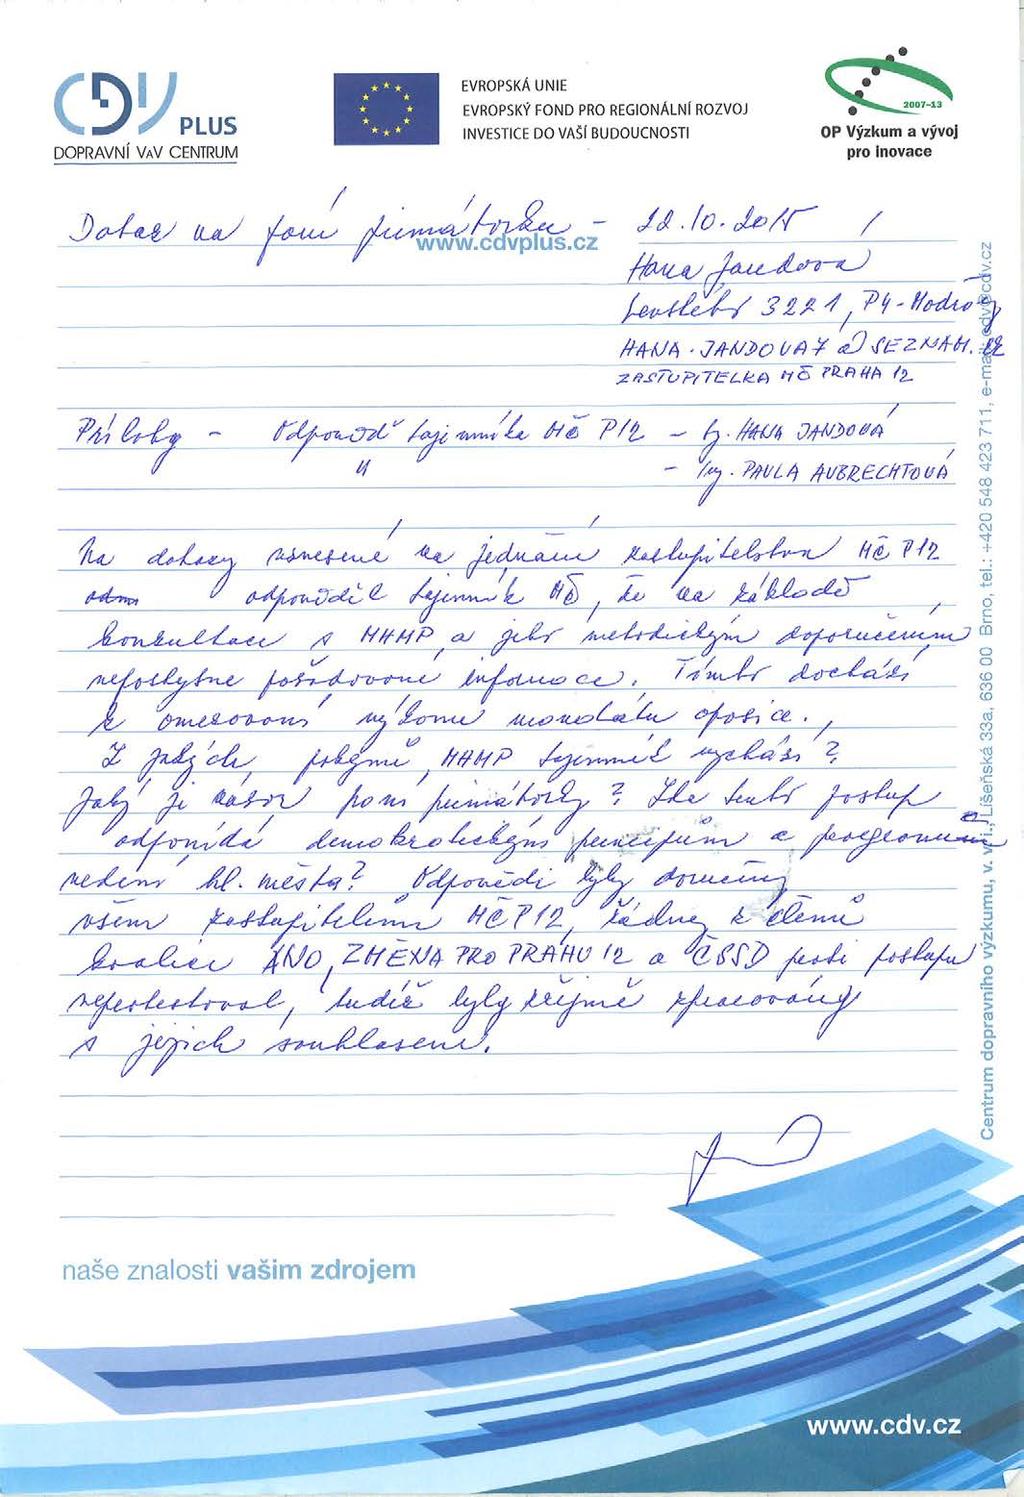 CDV PLUS
DOPRAVNÍ VAV CENTRUM
EVROPSKÁ UNIE
EVROPSKÝ FOND PRO REGIONÁLNÍ ROZVOJ
INVESTICE DO VAŠÍ BUDOUCNOSTI
2007-13
OP Výzkum a vývoj
pro inovace
Dotaz na paní primátorku - 22.10.2015
www.cdvplus.cz
Hana Jandová
3221, P4-Modřany
HANA.JANDOVA7@SEZNAM.CZ
ZASTUPITELKA MČ PRAHA 12
Přílohy - Odpověď tajemníka MČ P12 - Ing. HANA JANDOVÁ
" - Ing. PAVLA AUBRECHTOVÁ
Na dotazy vznesené na jednání zastupitelstva MČ P12
odpověděl tajemník MČ, že na základě
konzultace s MHMP a jeho metodickým doporučením
neposkytne požadované informace. Tímto dochází
k omezování výkonu mandátu opozice.
Z jakých pokynů MHMP tajemník vychází?
Jaký je názor paní primátorky? Zda tento postup
odpovídá demokratickým principům a
vedení hl. města? Odpovědi byly doručeny
všem zastupitelům MČ P12, žádný z členů
koalice ANO, ZMĚNA PRO PRAHU 12 a ČSSD proti postupu
neprotestoval, tudíž byly zřejmě zpracovány
s jejich souhlasem.
naše znalosti vašim zdrojem
www.cdv.cz
Centrum dopravního výzkumu, v. v. i., Líšeňská 33a, 636 00 Brno, tel.: +420 548 423 711, e-mail: cdv@cdv.cz